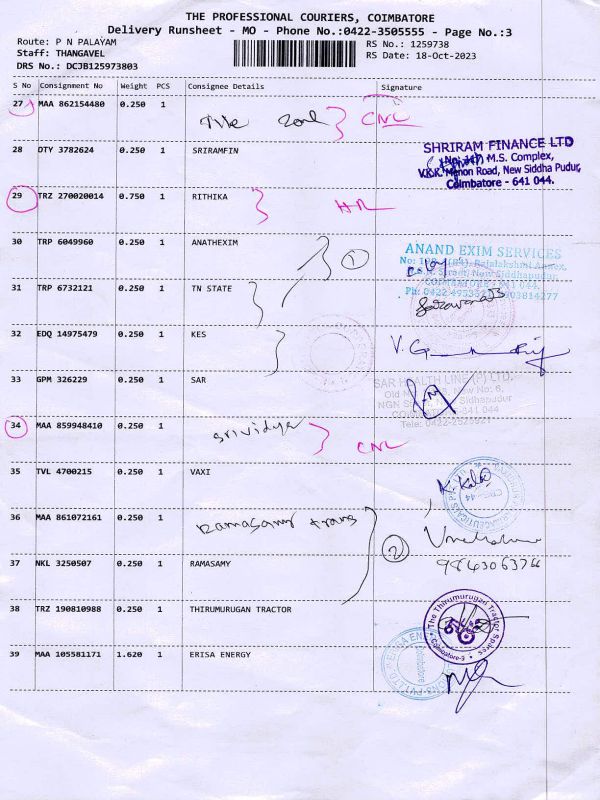 THE PROFESSIONAL COURIERS, COIMBATORE
Delivery Runsheet - MO - Phone No.:0422-3505555 - Page No.:3
Route: P N PALAYAM
Staff: THANGAVEL
DRS No.: DCJB125973803
RS No.: 1259738
RS Date: 18-Oct-2023
S No Consignment No Weight PCS Consignee Details Signature
27 MAA 862154480 0.250 1 CNL
28 DTY 3782624 0.250 1 SRIRAMFIN
SHRIRAM FINANCE LTD
M.S. Complex,
V.K.K. Menon Road, New Siddha Pudur,
Coimbatore - 641 044.
29 TRZ 270020014 0.750 1 RITHIKA
30 TRP 6049960 0.250 1 ANATHEXIM 1
ANAND EXIM SERVICES
31 TRP 6732121 0.250 1 TN STATE
32 EDQ 14975479 0.250 1 KES
33 GPM 326229 0.250 1 SAR
SAR HEALTH LINE (P) LTD.
34 MAA 859948410 0.250 1 srividya CNL
35 TVL 4700215 0.250 1 VAXI
K. Kala
36 MAA 861072161 0.250 1 Ramasamy trans 2
37 NKL 3250507 0.250 1 RAMASAMY
38 TRZ 190810988 0.250 1 THIRUMURUGAN TRACTOR
The Thirumurugan Tractor Spares
Coimbatore-9
39 MAA 105581171 1.620 1 ERISA ENERGY